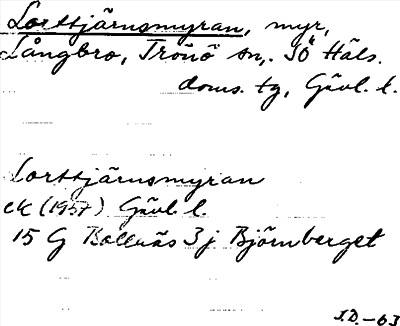 Lorttjärnsmyran, myr,
Långbro, Trönö sn, SÖ Häls.
doms. tg, Gävl. l.
Lorttjärnsmyran
ek (1957) Gävl. l.
15 G Bollnäs 3 j Björnberget
J.D.-63